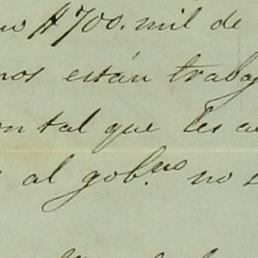 $700. mil de
nos están trabaj
on tal que les a
al gob.no no s